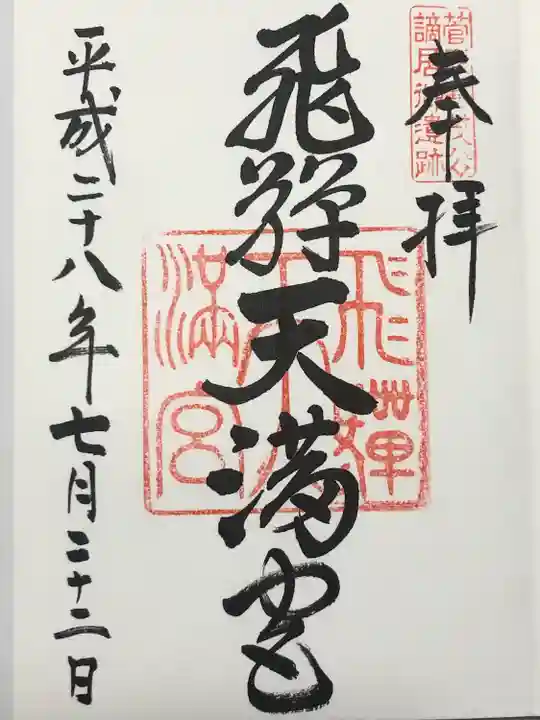 奉拝
飛騨天満宮
平成二十八年七月二十二日
飛騨
天
満宮
謫居御遺跡